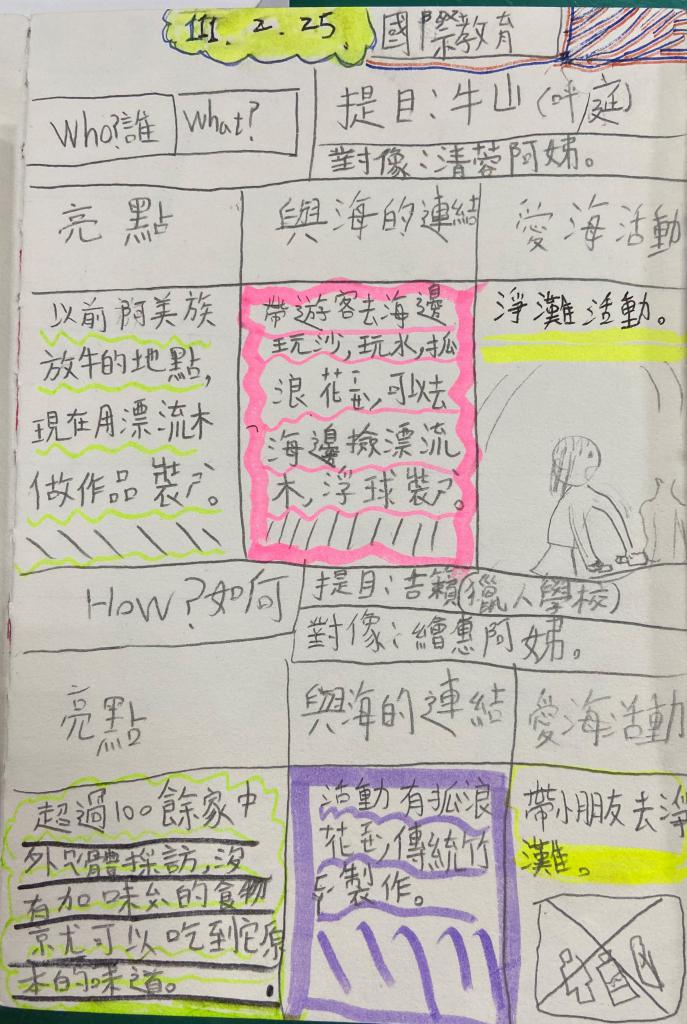 111.2.25.
國際教育
Who?誰
What?
提目:牛山(呼庭)
對像:清蓉阿姊。
亮點
與海的連結
愛海活動
以前阿美族
放牛的地點,
現在用漂流木
做作品裝ㄕ。
帶遊客去海邊
玩沙,玩水,抓
浪花
可以去
海邊撿漂流
木,浮球裝ㄕ。
淨灘活動。
How?如何
提目:吉籟(獵人學校)
對像:繪惠阿姊。
亮點
與海的連結
愛海活動
超過100餘家中
外
體採訪,沒
有加味
的食物
京尤可以吃到它原
本的味道。
活動有抓浪
花
傳統竹
製作。
帶小朋友去淨
灘。